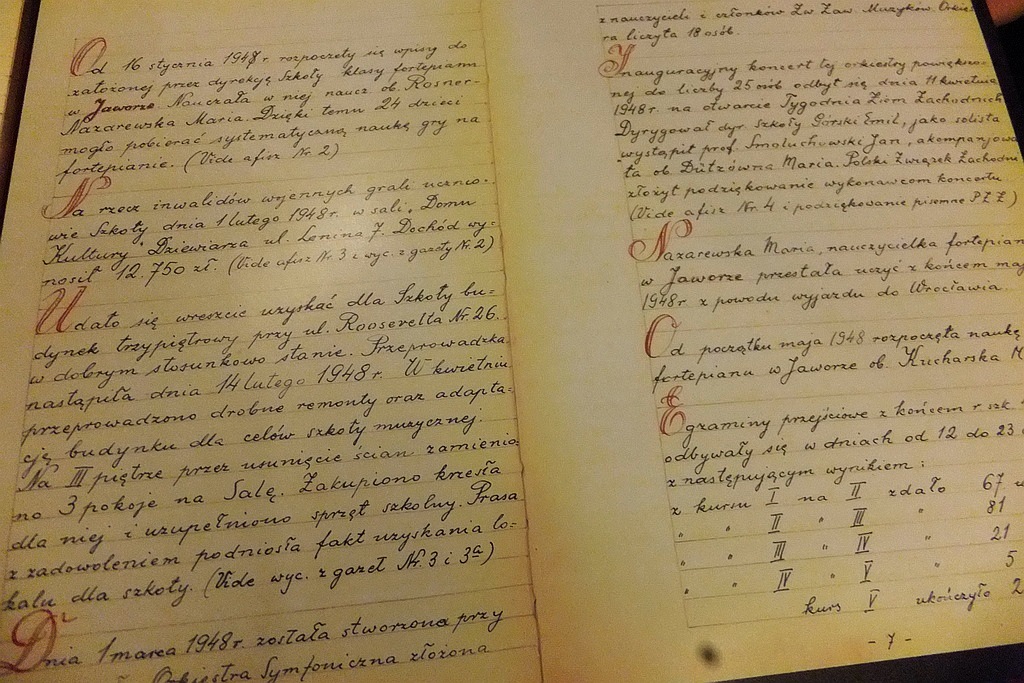 Od 16 stycznia 1948 r. rozpoczęły się wpisy do
założonej przez dyrekcję Szkoły klasy fortepianu
w Jaworze. Nauczała w niej naucz. ob. Rosner-
Nazarewska Maria. Dzięki temu 24 dzieci
mogło pobierać systematyczną naukę gry na
fortepianie. (Vide afisz Nr. 2)
Na rzecz inwalidów wojennych grali ucznio-
wie Szkoły dnia 1 lutego 1948 r. w sali „Domu
Kultury" Dziewiarza ul. Lenina 7. Dochód wy-
nosił 12.750 zł. (Vide afisz Nr. 3 i wyc. z gazety Nr. 2)
Udało się wreszcie uzyskać dla Szkoły bu-
dynek trzypiętrowy przy ul. Roosevelta Nr. 26.
w dobrym stosunkowo stanie. Przeprowadzka
nastąpiła dnia 14 lutego 1948 r. W kwietniu
przeprowadzono drobne remonty oraz adapta-
cję budynku dla celów szkoły muzycznej.
Na III piętrze przez usunięcie ścian zamienio-
no 3 pokoje na Salę. Zakupiono krzesła
dla niej i uzupełniono sprzęt szkolny. Prasa
z zadowoleniem podniosła fakt uzyskania lo-
kalu dla szkoły. (Vide wyc. z gazet Nr. 3 i 3a)
Dnia 1 marca 1948 r. została stworzona przy
Orkiestra Symfoniczna złożona
z nauczycieli i członków Zw. Zaw. Muzyków. Orkie
ra liczyła 18 osób.
Inauguracyjny koncert tej orkiestry powiększo-
nej do liczby 25 osób odbył się dnia 11 kwietnia
1948 r. na otwarcie Tygodnia Ziem Zachodnich
Dyrygował dyr. Szkoły Górski Emil, jako solista
wystąpił prof. Smoluchowski Jan, akompaniowa
ła ob. Dützówna Maria. Polski Związek Zachodni
złożył podziękowanie wykonawcom koncertu
(Vide afisz Nr. 4 i podziękowanie pisemne P.Z.Z)
Nazarewska Maria, nauczycielka fortepian
w Jaworze przestała uczyć z końcem maj
1948 r. z powodu wyjazdu do Wrocławia.
Od początku maja 1948 rozpoczęła naukę
fortepianu w Jaworze ob. Kucharska M
Egzaminy przejściowe z końcem r. szk.
odbywały się w dniach od 12 do 23
z następującym wynikiem:
z kursu I na II zdało 67 u
„ „ II „ III „ 81
„ „ III „ IV „ 21
„ „ IV „ V „ 5
kurs V ukończyło 2
- 7 -